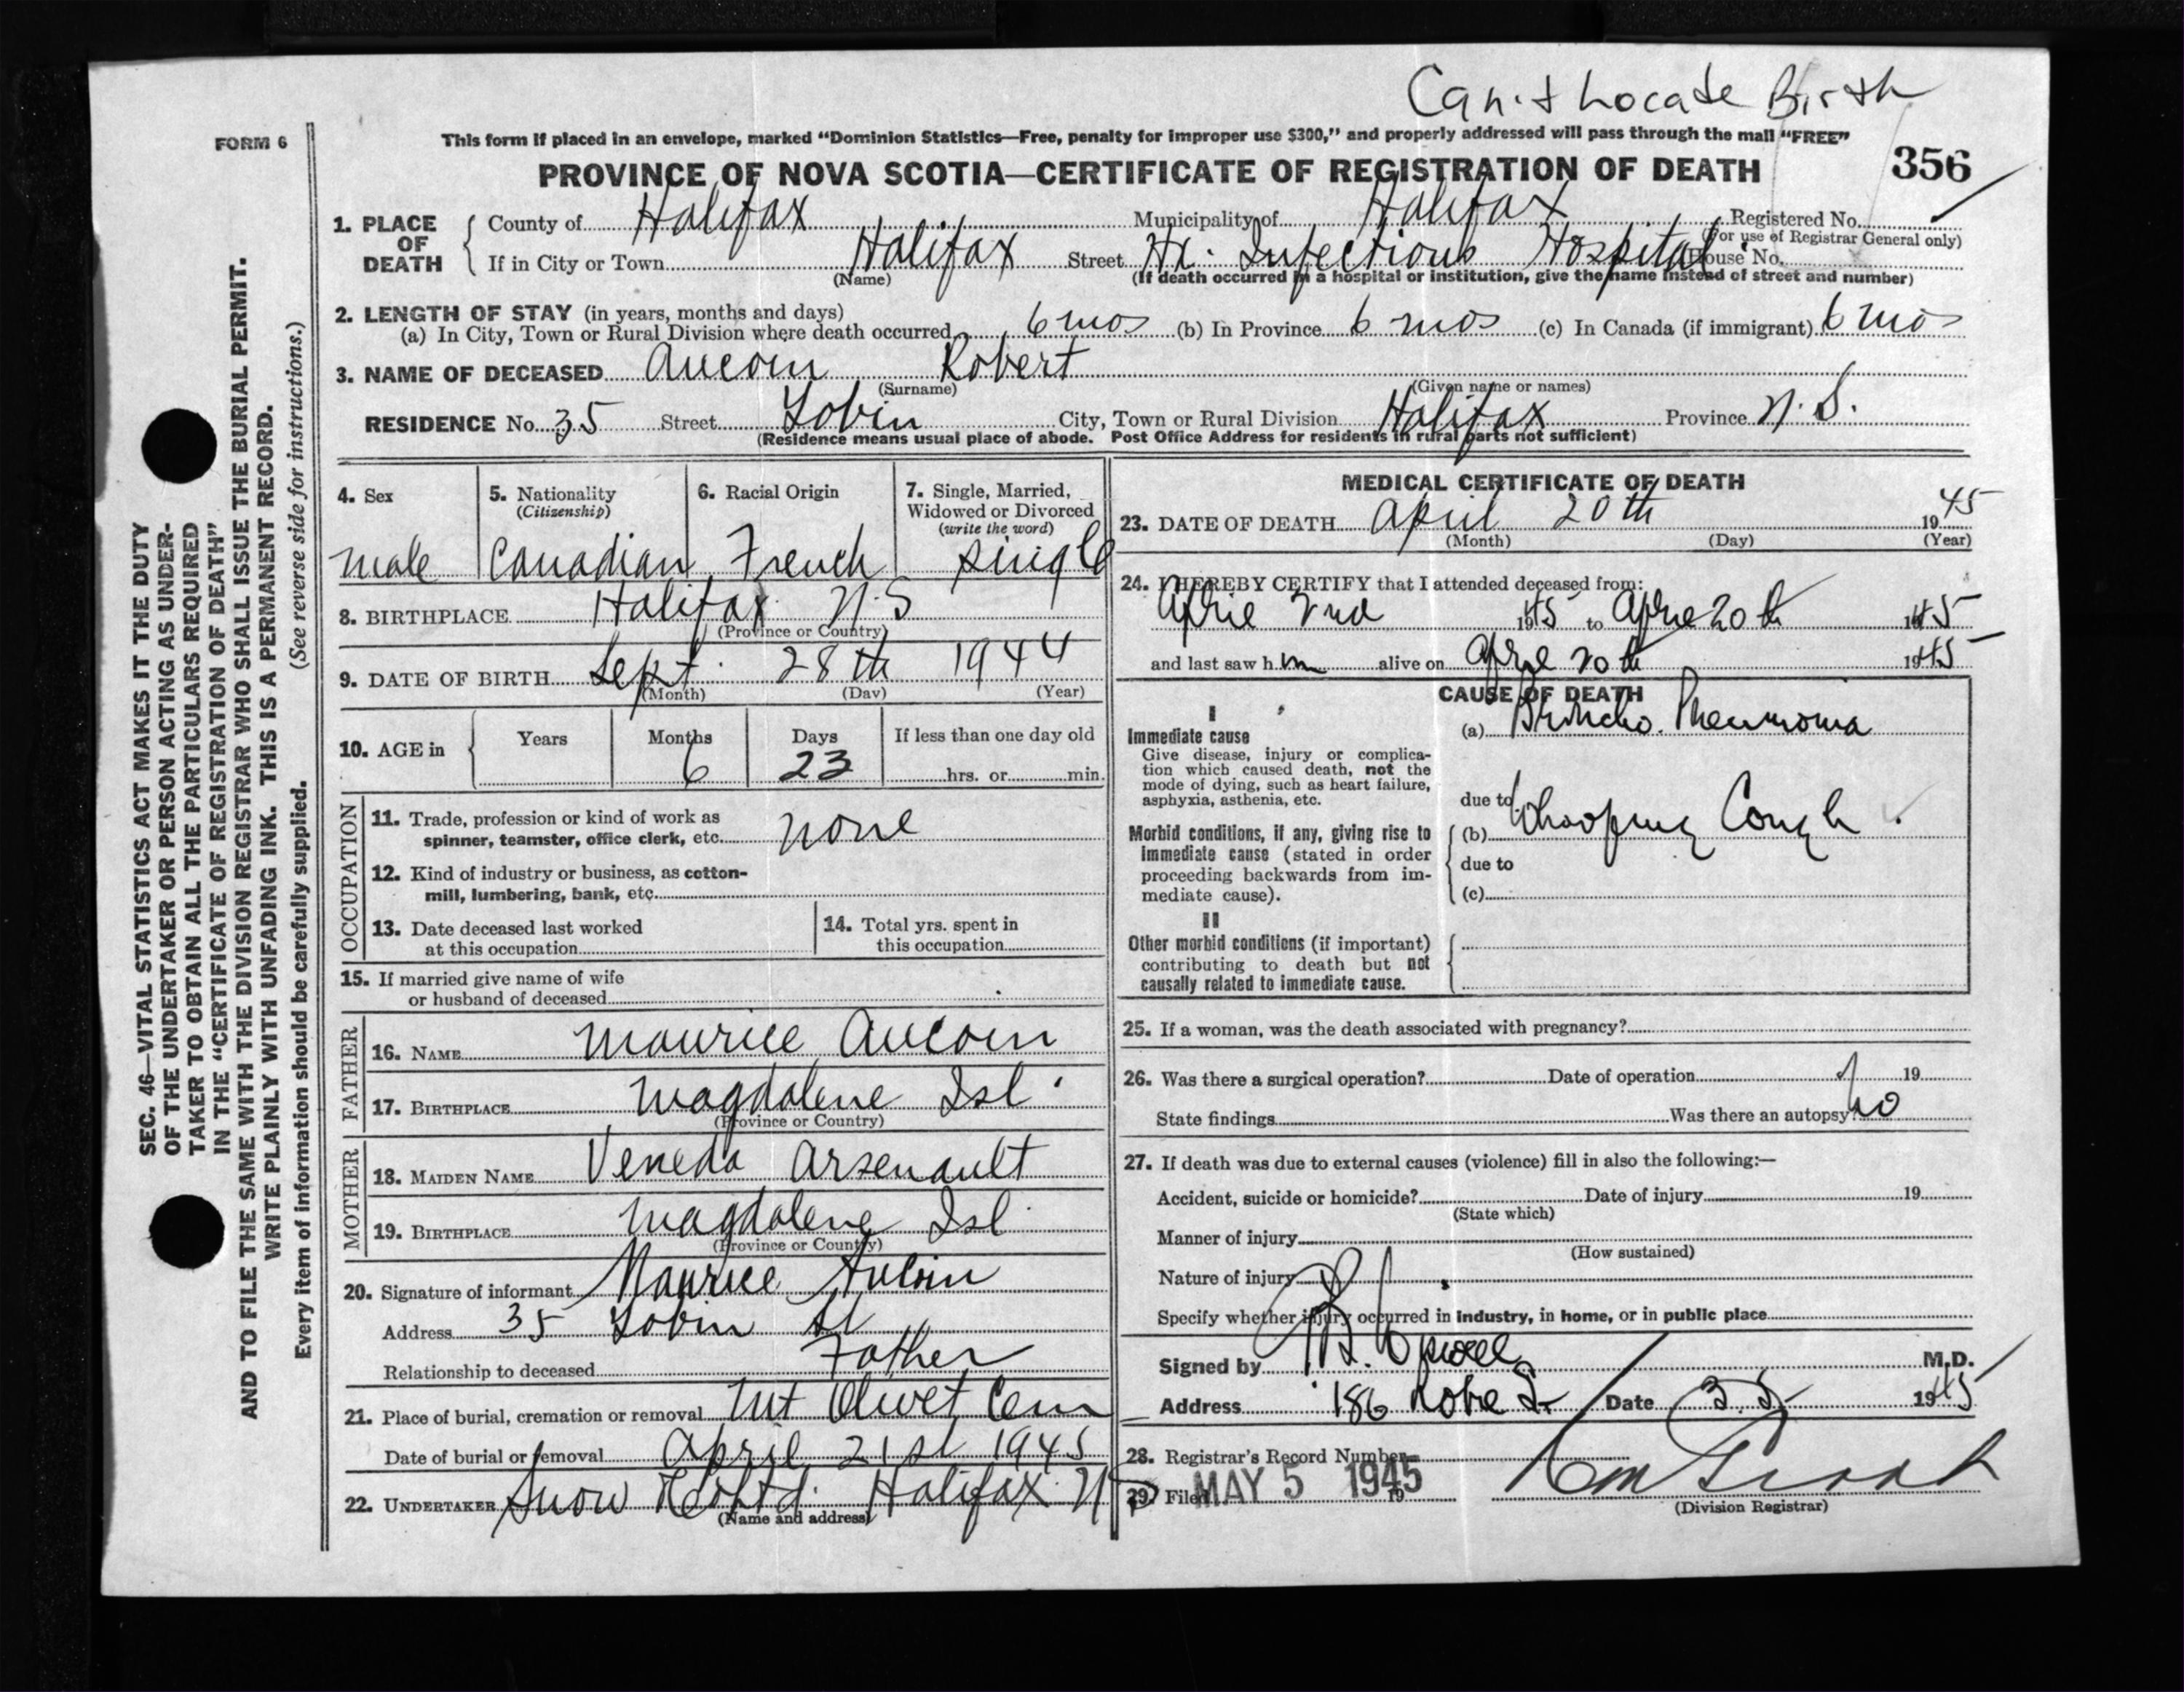 Can't Locate Birth
FORM 6
This form if placed in an envelope, marked "Dominion Statistics—Free, penalty for improper use $300," and properly addressed will pass through the mail "FREE"
PROVINCE OF NOVA SCOTIA—CERTIFICATE OF REGISTRATION OF DEATH 356
1. PLACE OF DEATH
County of Halifax Municipality of Halifax Registered No.
(For use of Registrar General only)
If in City or Town Halifax Street Hx. Infectious Hospital House No.
(Name) (If death occurred in a hospital or institution, give the name instead of street and number)
2. LENGTH OF STAY (in years, months and days)
(a) In City, Town or Rural Division where death occurred 6 mos (b) In Province 6 mos (c) In Canada (if immigrant) 6 mos
3. NAME OF DECEASED Aucoin Robert
(Surname) (Given name or names)
RESIDENCE No. 35 Street Tobin City, Town or Rural Division Halifax Province N.S.
(Residence means usual place of abode. Post Office Address for residents in rural parts not sufficient)
4. Sex
male
5. Nationality
(Citizenship)
Canadian
6. Racial Origin
French
7. Single, Married,
Widowed or Divorced
(write the word)
single
8. BIRTHPLACE Halifax N.S
(Province or Country)
9. DATE OF BIRTH Sept. 28th 1944
(Month) (Day) (Year)
10. AGE in Years Months Days If less than one day old
6 23 hrs. or min.
OCCUPATION
11. Trade, profession or kind of work as
spinner, teamster, office clerk, etc. none
12. Kind of industry or business, as cotton-
mill, lumbering, bank, etc.
13. Date deceased last worked
at this occupation
14. Total yrs. spent in
this occupation
15. If married give name of wife
or husband of deceased
FATHER
16. NAME Maurice Aucoin
17. BIRTHPLACE Magdalene Isl.
(Province or Country)
MOTHER
18. MAIDEN NAME Veneda Arsenault
19. BIRTHPLACE Magdalene Isl.
(Province or Country)
20. Signature of informant Maurice Aucoin
Address 35 Tobin St
Relationship to deceased Father
21. Place of burial, cremation or removal Mt Olivet Cem
Date of burial or removal April 21st 1945
22. UNDERTAKER Snow & Co Ltd. Halifax NS
(Name and address)
MEDICAL CERTIFICATE OF DEATH
23. DATE OF DEATH April 20th 1945
(Month) (Day) (Year)
24. I HEREBY CERTIFY that I attended deceased from:
April 2nd 1945 to April 20th 1945
and last saw him alive on April 20th 1945
CAUSE OF DEATH
I
Immediate cause
Give disease, injury or complica-
tion which caused death, not the
mode of dying, such as heart failure,
asphyxia, asthenia, etc.
(a) Broncho. Pneumonia
due to
Morbid conditions, if any, giving rise to
immediate cause (stated in order
proceeding backwards from im-
mediate cause).
(b) Whooping Cough
due to
(c)
II
Other morbid conditions (if important)
contributing to death but not
causally related to immediate cause.
25. If a woman, was the death associated with pregnancy?
26. Was there a surgical operation? Date of operation 19
State findings Was there an autopsy? No
27. If death was due to external causes (violence) fill in also the following:—
Accident, suicide or homicide? Date of injury 19
(State which)
Manner of injury
(How sustained)
Nature of injury
Specify whether injury occurred in industry, in home, or in public place
Signed by M.D.
Address 186 Robie St. Date 1945
28. Registrar's Record Number
29. Filed MAY 5 1945 19
(Division Registrar)
SEC. 46—VITAL STATISTICS ACT MAKES IT THE DUTY
OF THE UNDERTAKER OR PERSON ACTING AS UNDER-
TAKER TO OBTAIN ALL THE PARTICULARS REQUIRED
IN THE "CERTIFICATE OF REGISTRATION OF DEATH"
AND TO FILE THE SAME WITH THE DIVISION REGISTRAR WHO SHALL ISSUE THE BURIAL PERMIT.
WRITE PLAINLY WITH UNFADING INK. THIS IS A PERMANENT RECORD.
Every item of information should be carefully supplied. (See reverse side for instructions.)